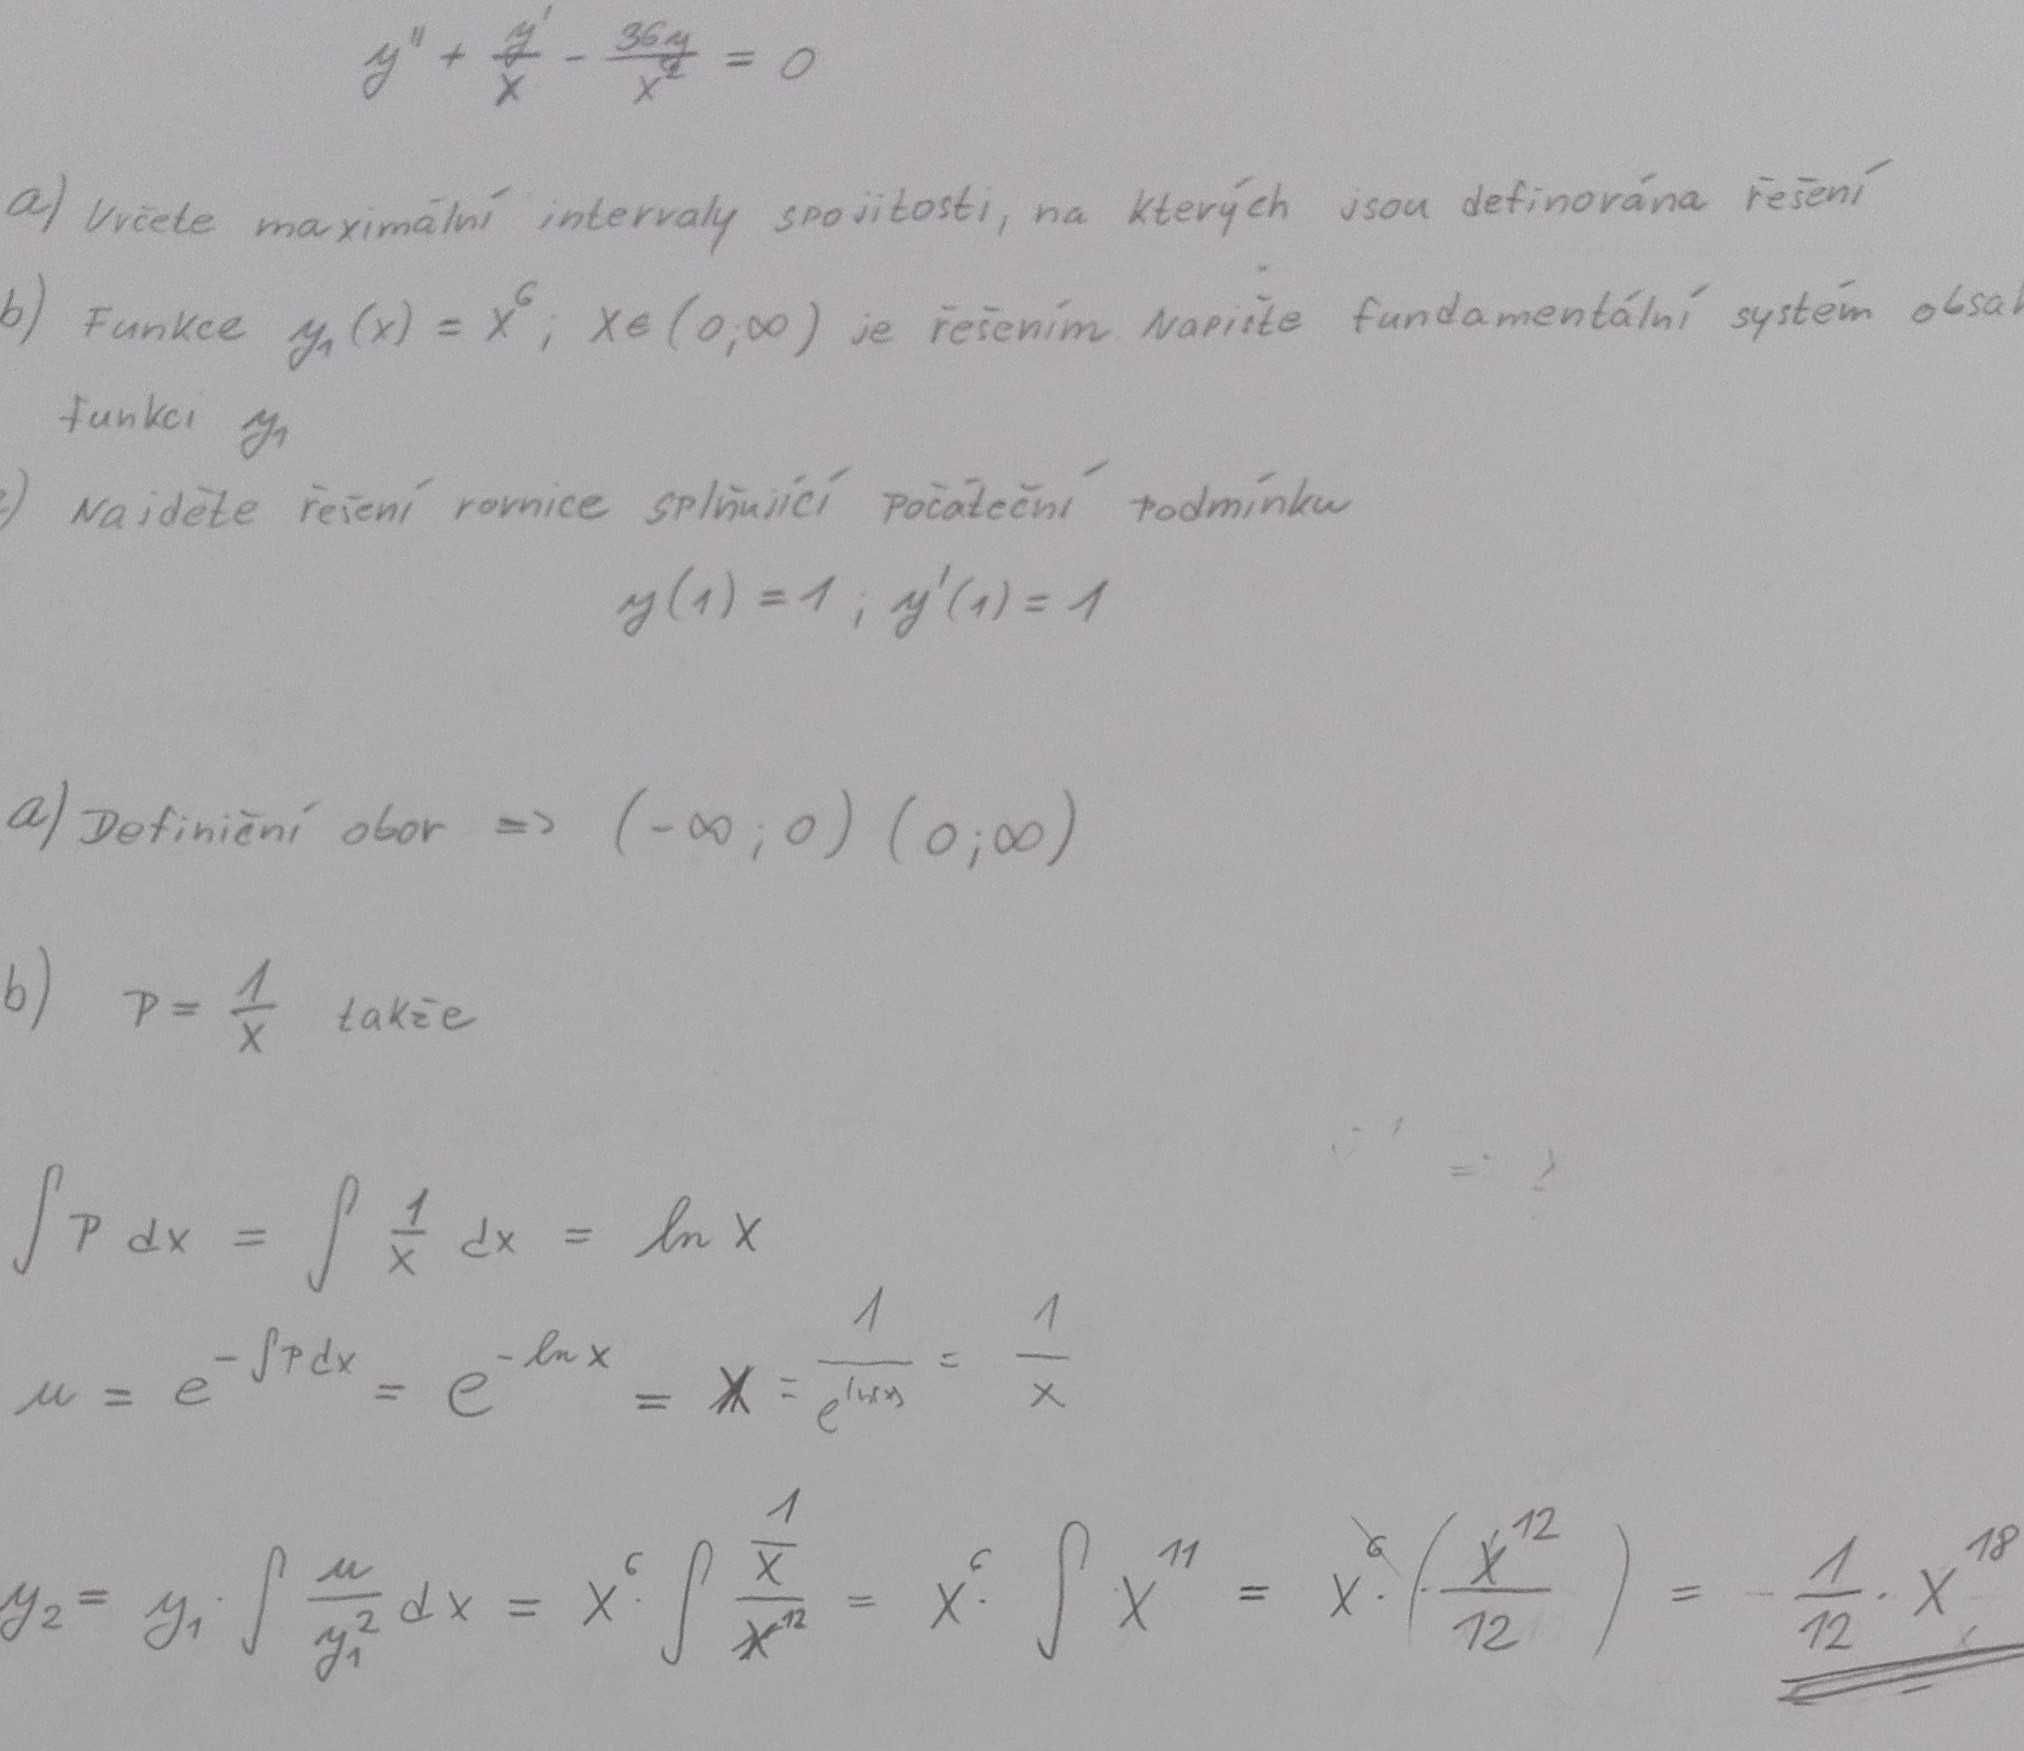 y'' + y'/x - 36y/x² = 0
a) Určete maximální intervaly spojitosti, na kterých jsou definována řešení
b) Funkce y₁(x) = x⁶; x∈(0;∞) je řešením Napište fundamentální systém obsah
funkci y₁
c) Najděte řešení rovnice splňující počáteční podmínku
y(1) = 1 ; y'(1) = 1
a) Definiční obor => (-∞; 0) (0;∞)
b) P = 1/x takže
∫ P dx = ∫ 1/x dx = ln x
u = e^(-∫P dx) = e^(-ln x) = = 1/e^(ln(x)) = 1/x
y₂ = y₁ · ∫ u/y₁² dx = x⁶ · ∫ (1/x)/x¹² = x⁶ · ∫ x¹¹ = x⁶ · (x¹²/12) = - 1/12 · x¹⁸